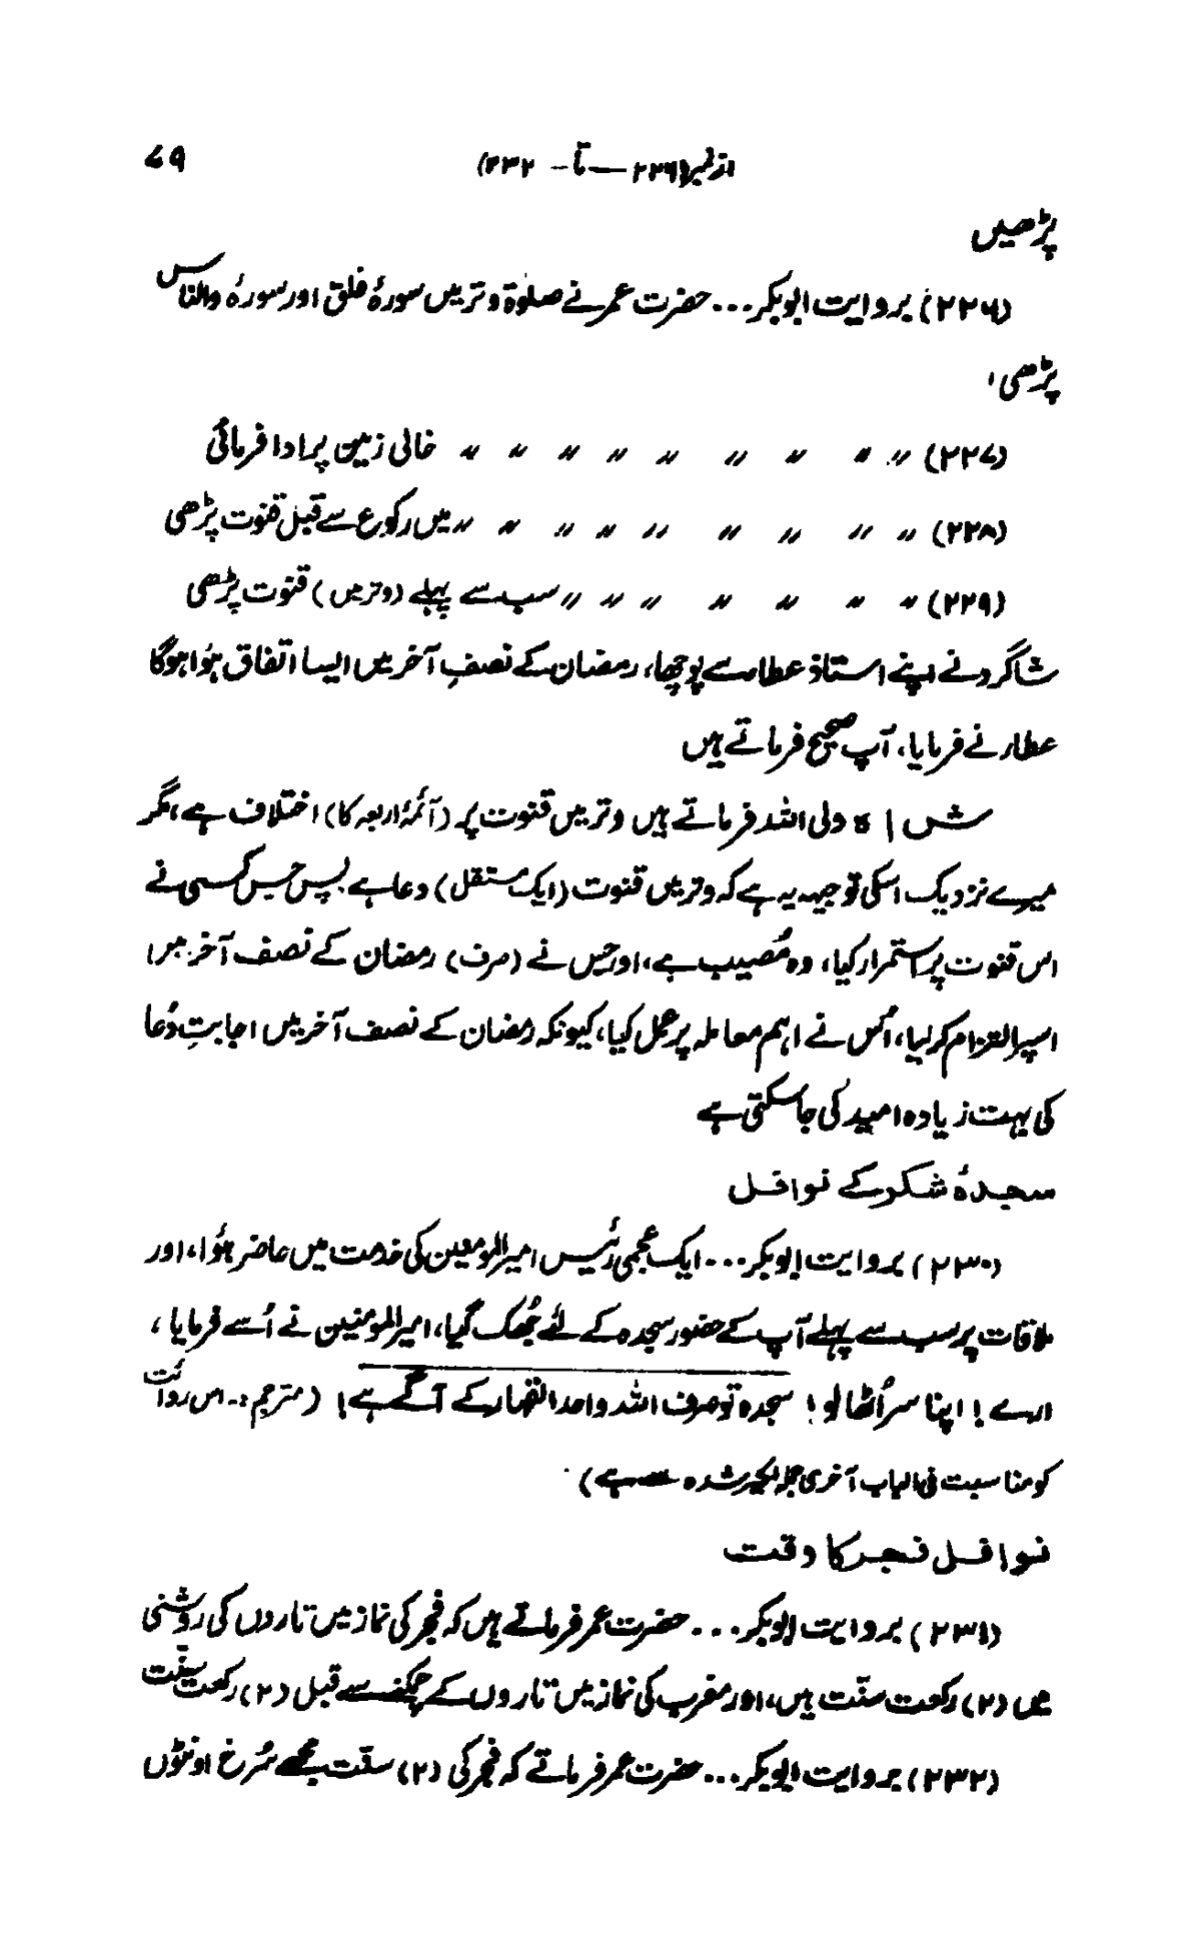 از نمبر (۲۲۶ — تا — ۲۳۲) ۷۹
پڑھیں
(۲۲۶) بروایت ابوبکر... حضرت عمر نے صلوٰۃ وتر میں سورۂ فلق اور سورۂ والناس
پڑھی،
(۲۲۷) 〃 〃 〃 〃 〃 〃 〃 〃 〃 〃 خالی زمین پر ادا فرمائی
(۲۲۸) 〃 〃 〃 〃 〃 〃 〃 〃 〃 〃 میں رکوع سے قبل قنوت پڑھی
(۲۲۹) 〃 〃 〃 〃 〃 〃 〃 سب سے پہلے (وتر میں) قنوت پڑھی
شاگرد نے اپنے استاذ عطاء سے پوچھا، رمضان کے نصفِ آخر میں ایسا اتفاق ہؤا ہوگا
عطار نے فرمایا، آپ صحیح فرماتے ہیں
شاہ ولی اللہ فرماتے ہیں وتر میں قنوت پر (آئمۂ اربعہ کا) اختلاف ہے، مگر
میرے نزدیک اسکی توجیہہ یہ ہے کہ وتر میں قنوت (ایک مستقل) دعا ہے پس جس کسی نے
اس قنوت پر استمرار کیا، وہ مُصیب ہے، اور جس نے (صرف) رمضان کے نصف آخر میں
اسپر التزام کر لیا، اُس نے اہم معاملہ پر عمل کیا، کیونکہ رمضان کے نصف آخر میں اجابتِ دُعا
کی بہت زیادہ امید کی جا سکتی ہے
سجدۂ شکر کے نوافل
(۲۳۰) بروایت ابوبکر... ایک عجمی رئیس امیرالمومنین کی خدمت میں حاضر ہؤا، اور
ملاقات پر سب سے پہلے آپ کے حضور سجدہ کے لئے جُھک گیا، امیرالمومنین نے اُسے فرمایا،
ارے! اپنا سر اُٹھا لو! سجدہ تو صرف اللہ واحد القہار کے آگے ہے! (مترجم:۔ اس روائت
کو مناسبت فی الباب آخری جملہ لکیر شدہ سے ہے)
نوافل فجر کا وقت
(۲۳۱) بروایت ابوبکر... حضرت عمر فرماتے ہیں کہ فجر کی نماز میں تاروں کی روشنی
میں (۲) رکعت سنّت ہیں، اور مغرب کی نماز میں تاروں کے چمکنے سے قبل (۲) رکعت سنّت
(۲۳۲) بروایت ابوبکر... حضرت عمر فرماتے کہ فجر کی (۲) سنّت مجھے سُرخ اونٹوں